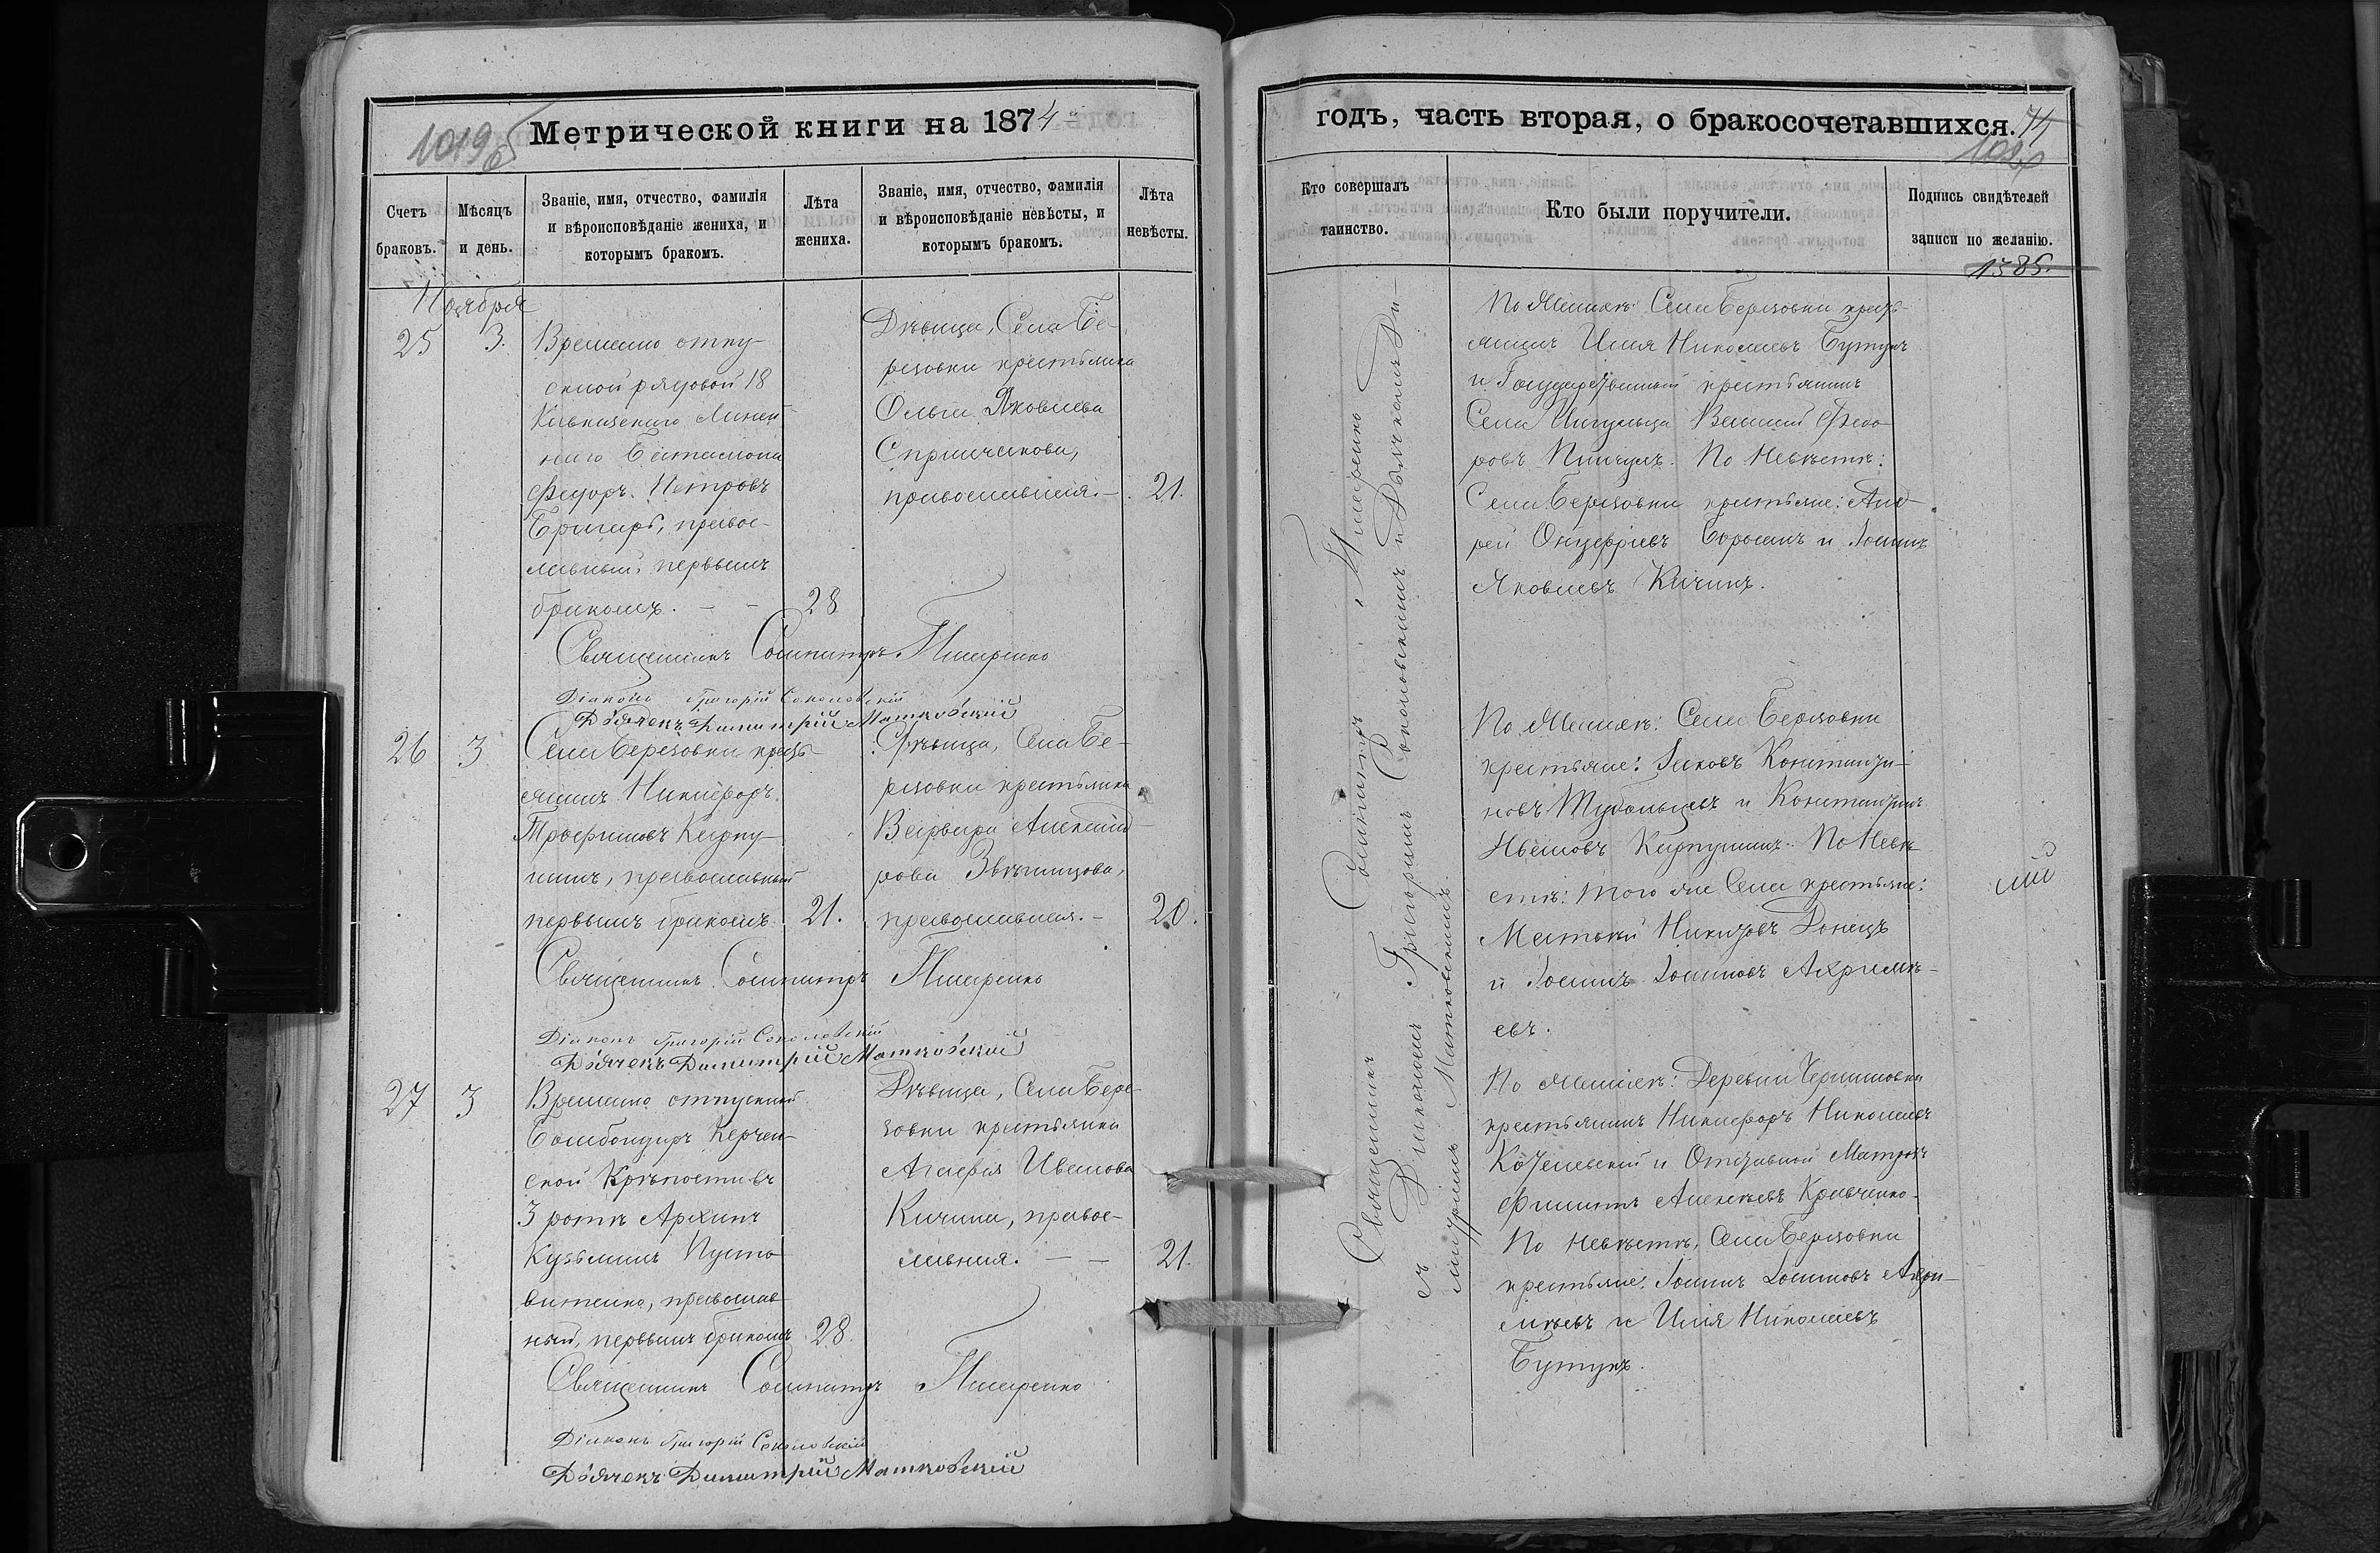 Метрической книги на 1874
Счетъ
браковъ.
Мѣсяцъ
и день.
Званіе, имя, отчество, фамилія
и вѣроисповѣданіе жениха, и
которымъ бракомъ.
Лѣта
жениха.
Званіе, имя, отчество, фамилія
и вѣроисповѣданіе невѣсты, и
которымъ бракомъ.
Лѣта
невѣсты.
Ноября
25
3.
Временно отпу-
скной рядовой 18
Кавказскаго Линей-
наго Баталіона
Федоръ Петровъ
православный, первымъ
бракомъ. – –
28
Дѣвица, Села Бе-
резовки крестьянка
Ольга Яковлева
православная. –
21.
Священникъ Сосипатръ Писаренко
Діаконъ Григорій Соколовскій
Дьячекъ Димитрій Матковскій
26
3
Села Березовки кресть-
янинъ Никифоръ
Трофимовъ Карпу-
шинъ, православный
первымъ бракомъ.
21.
Дѣвица, Села Бе-
резовки крестьянка
Варвара Александ-
рова
православная. –
20.
Священникъ Сосипатръ Писаренко
Діаконъ Григорій Соколовскій
Дьячекъ Димитрій Матковскій
27
3
Временно отпускный
Бомбондиръ Керчен-
ской Крѣпости въ
3 ротѣ Архипъ
Кузьминъ Пусто-
витенко, православ-
ный, первымъ бракомъ
28.
Дѣвица, Села Бере-
зовки крестьянка
Агафія Иванова
Качина, правос-
лавная. – –
21.
Священникъ Сосипатръ Писаренко
Діаконъ Григорій Соколовскій
Дьячекъ Димитрій Матковскій
годъ, часть вторая, о бракосочетавшихся.
Кто совершалъ
таинство.
Кто были поручители.
Подпись свидѣтелей
записи по желанію.
1385.
Священникъ Сосипатръ Писаренко
съ Діакономъ Григоріемъ Соколовскимъ и Дьячкомъ Ди-
митріемъ Матковскимъ.
По Женихѣ: Села Березовки кресть-
янинъ Илія Николаевъ Бутукъ
и Государственный крестьянинъ
Села Ингульца Василій Федо-
ровъ По Невѣстѣ:
Села Березовки крестьяне: Анд-
рей Онуфріевъ и Іоаннъ
Яковлевъ Качинъ.
По Женихѣ: Села Березовки
крестьяне: Іаковъ Константи-
новъ и Константинъ
Ивановъ Карпушинъ. По Невѣ-
стѣ: того же Села крестьяне:
Матвѣй Никитовъ Донецъ
и Іоаннъ Іоанновъ Ахримѣ-
евъ.
По Женихѣ: Деревни
крестьянинъ Никифоръ Николаевъ
и Отставной Матросъ
Филиппъ Алексѣевъ Кравченко.
По Невѣстѣ, Села Березовки
крестьяне: Іоаннъ Іоанновъ Ахри-
мѣевъ и Илія Николаевъ
Бутукъ.